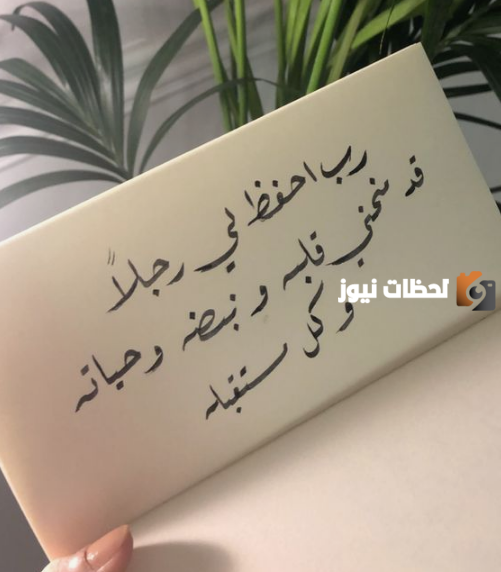 رب احفظ لي رجلاً
قد منحني قلبه و نبضه وحياته
و كل مستقبله
لحظات نيوز